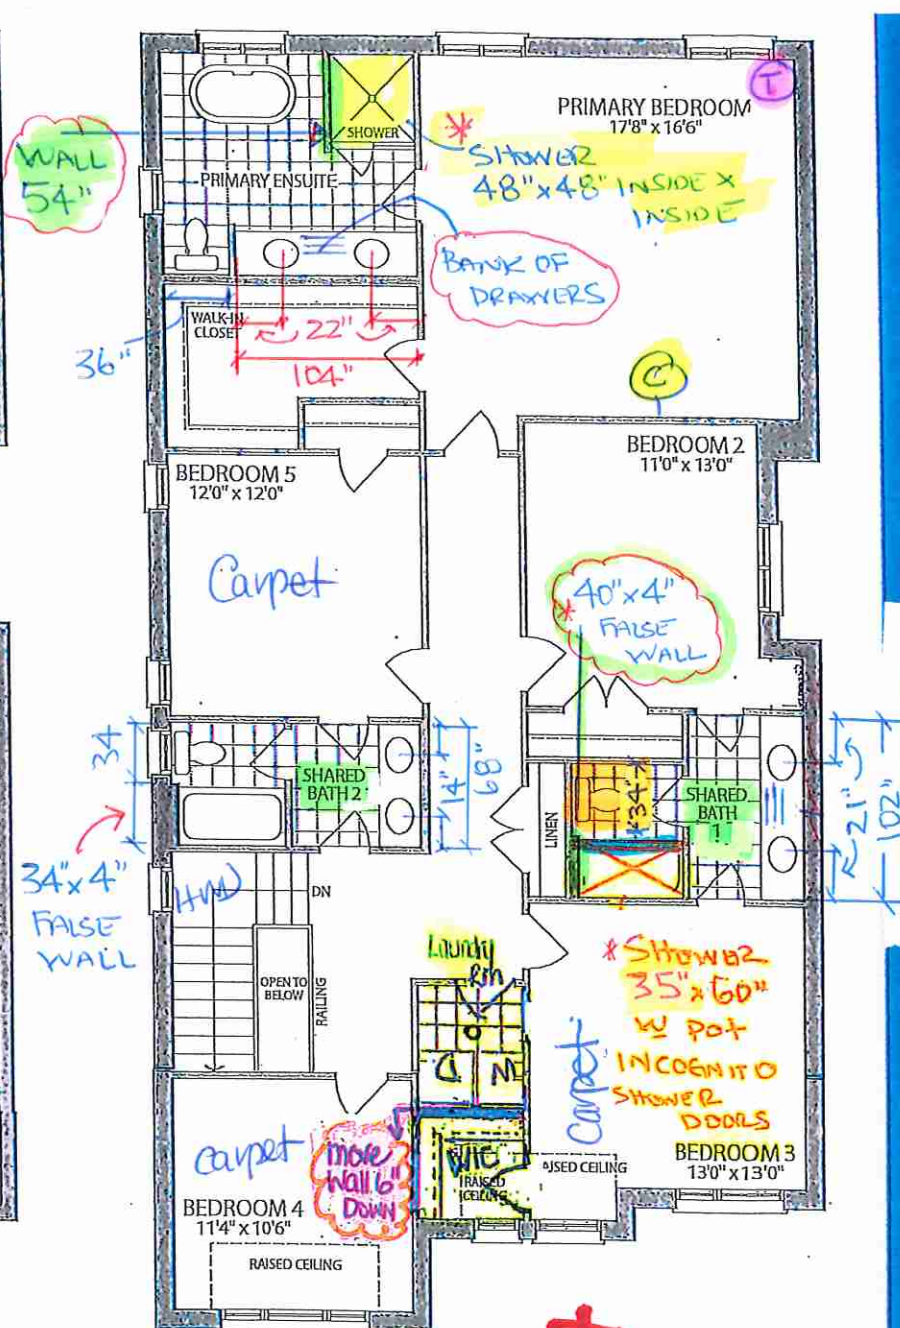 T
PRIMARY BEDROOM
17'8" x 16'6"
SHOWER
* SHOWER
48"x48" INSIDE X
INSIDE
WALL
54"
PRIMARY ENSUITE
BANK OF
DRAWERS
WALK-IN
CLOSET
22"
36"
104"
C
BEDROOM 2
11'0" x 13'0"
BEDROOM 5
12'0" x 12'0"
Carpet
* 40"x4"
FALSE
WALL
34
SHARED
BATH 2
14"
68"
LINEN
34"
SHARED
BATH
1
21"
102"
34"x4"
FALSE
WALL
DN
OPEN TO
BELOW
RAILING
Laundry
Rm
D
W
* SHOWER
35" x 60"
W POT
INCOGNITO
SHOWER
DOORS
Carpet
carpet
more
Wall 6"
DOWN
WIC
RAISED
CEILING
RAISED CEILING
BEDROOM 3
13'0" x 13'0"
BEDROOM 4
11'4" x 10'6"
RAISED CEILING